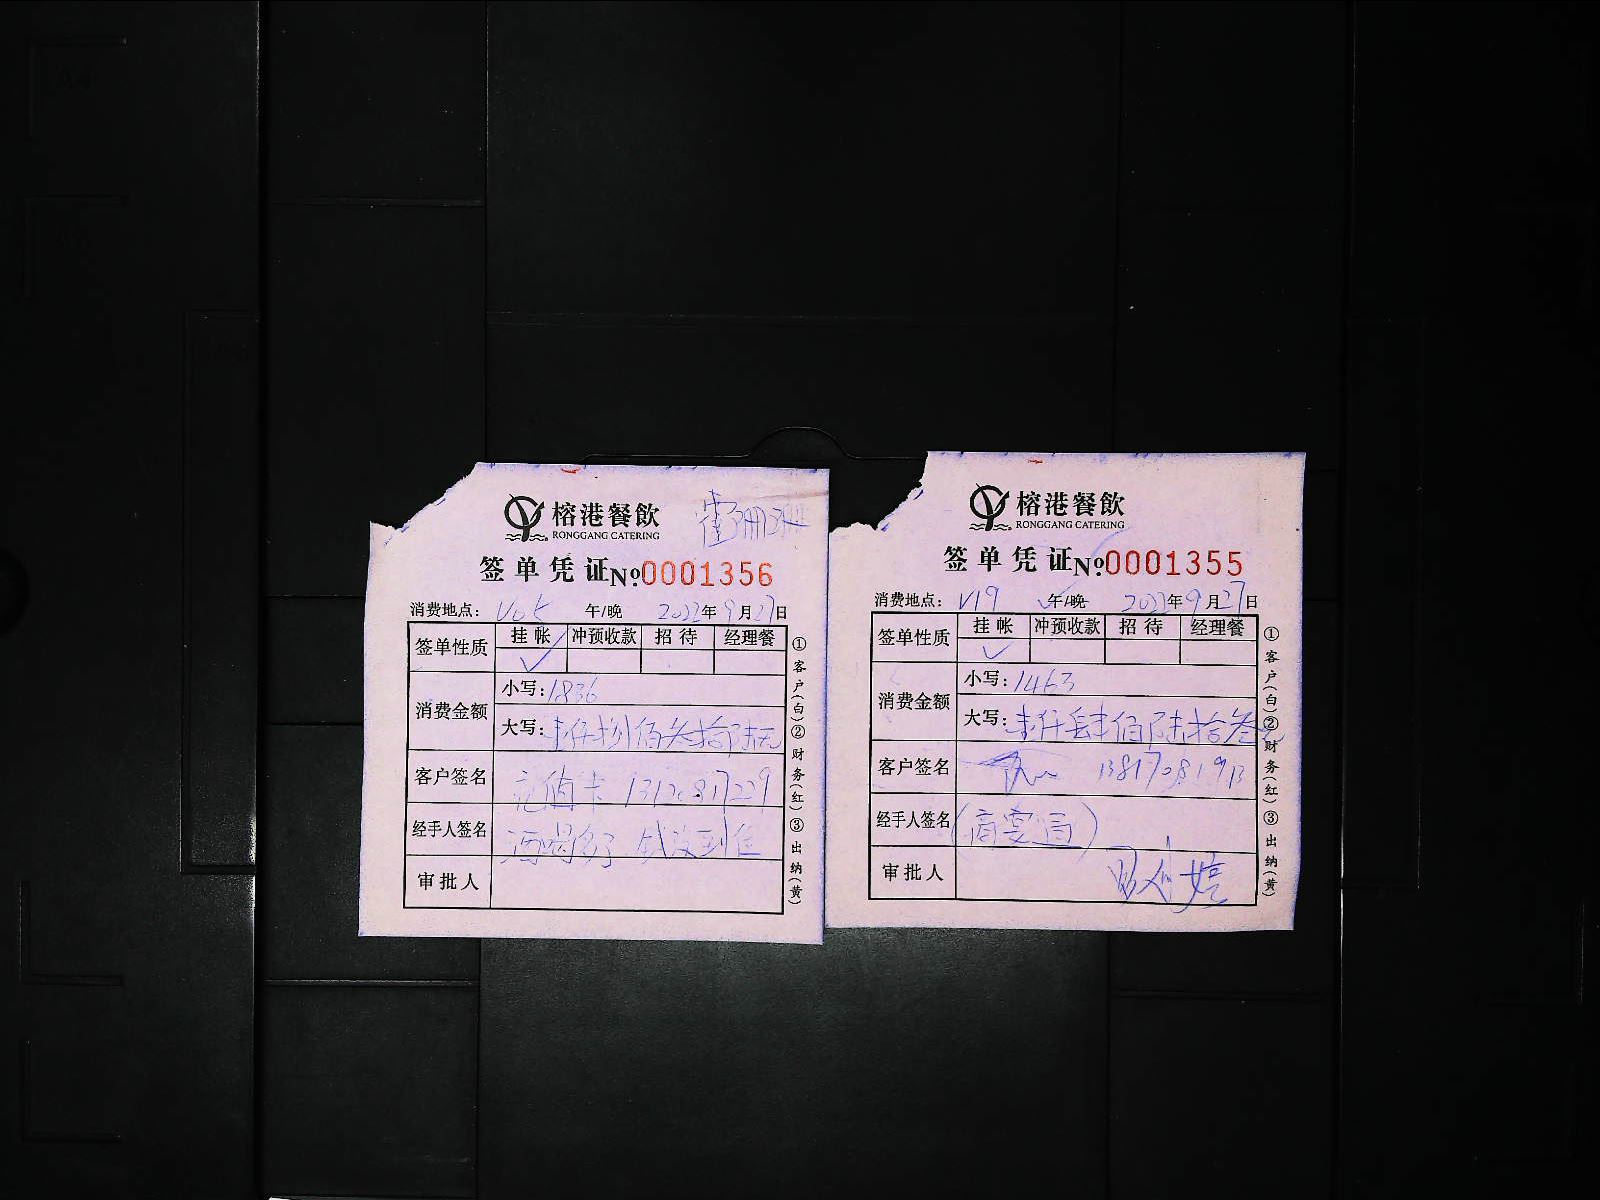 榕港餐飲
RONGGANG CATERING
签单凭证№0001356
消费地点： V05 午/晚 2022年9月27日
签单性质 挂帐 冲预收款 招待 经理餐
✓
消费金额 小写：1836
大写：壹仟捌佰叁拾陆元
客户签名 充值卡 13120817229
经手人签名 酒喝多了 钱没到位
审批人
①客户（白）②财务（红）③出纳（黄）
榕港餐飲
RONGGANG CATERING
签单凭证№0001355
消费地点： V19 午/晚 2022年9月27日
签单性质 挂帐 冲预收款 招待 经理餐
✓
消费金额 小写：1463
大写：壹仟肆佰陆拾叁元
客户签名 13817081913
经手人签名
审批人
①客户（白）②财务（红）③出纳（黄）